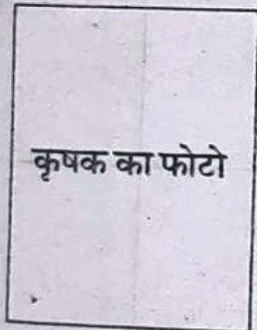 कृषक का फोटो